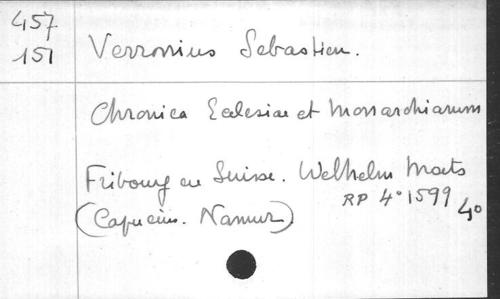 457
151
Verronius Sebastien.
Chronica Ecclesiae et Monarchiarum
Fribourg en Suisse. Welhelm Maets
RP 4° 1599 4°
(Capucins. Namur)